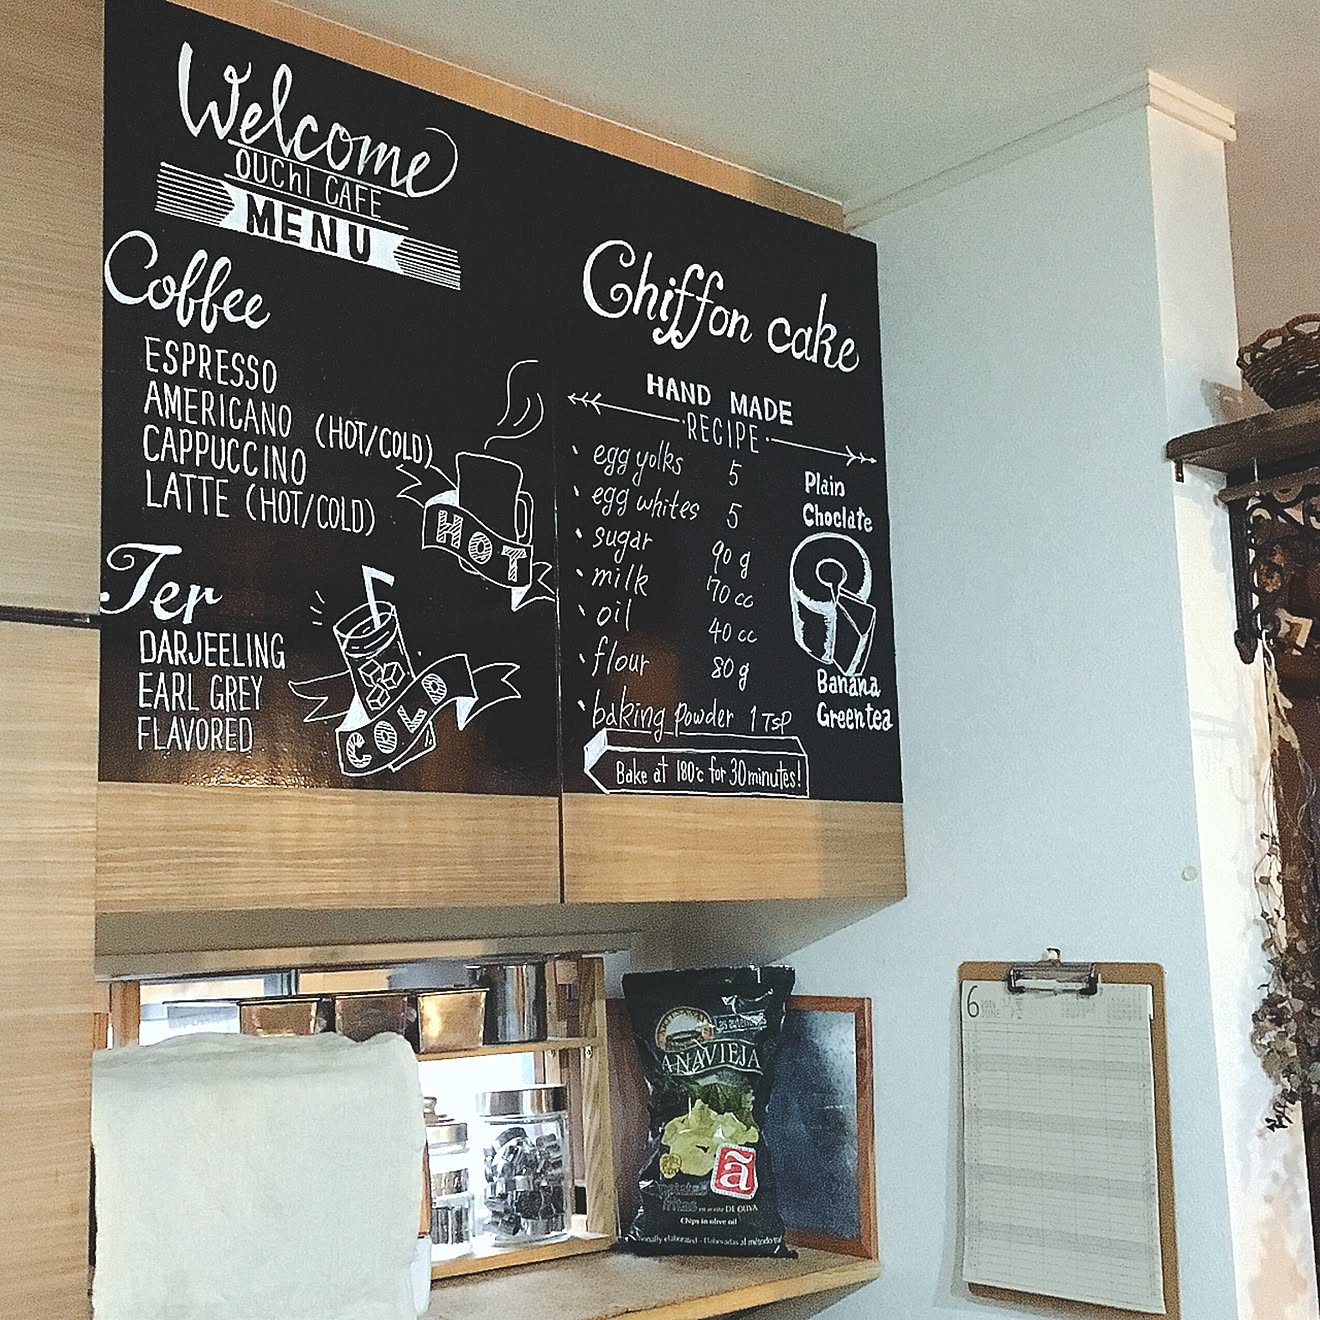 Welcome
OUChI CAFE
MENU
Coffee
ESPRESSO
AMERICANO (HOT/COLD)
CAPPUCCINO
LATTE (HOT/COLD)
HOT
Ter
DARJEELING
EARL GREY
FLAVORED
COLD
Chiffon cake
HAND MADE
RECIPE
egg yolks 5
egg whites 5
sugar 90 g
milk 70 cc
oil 40 cc
flour 80 g
baking powder 1 TSP
Bake at 180°c for 30minutes!
Plain
Choclate
Banana
Greentea
ANAVIEJA
ã
fritas en aceite DE OLIVA
Chips in olive oil
6